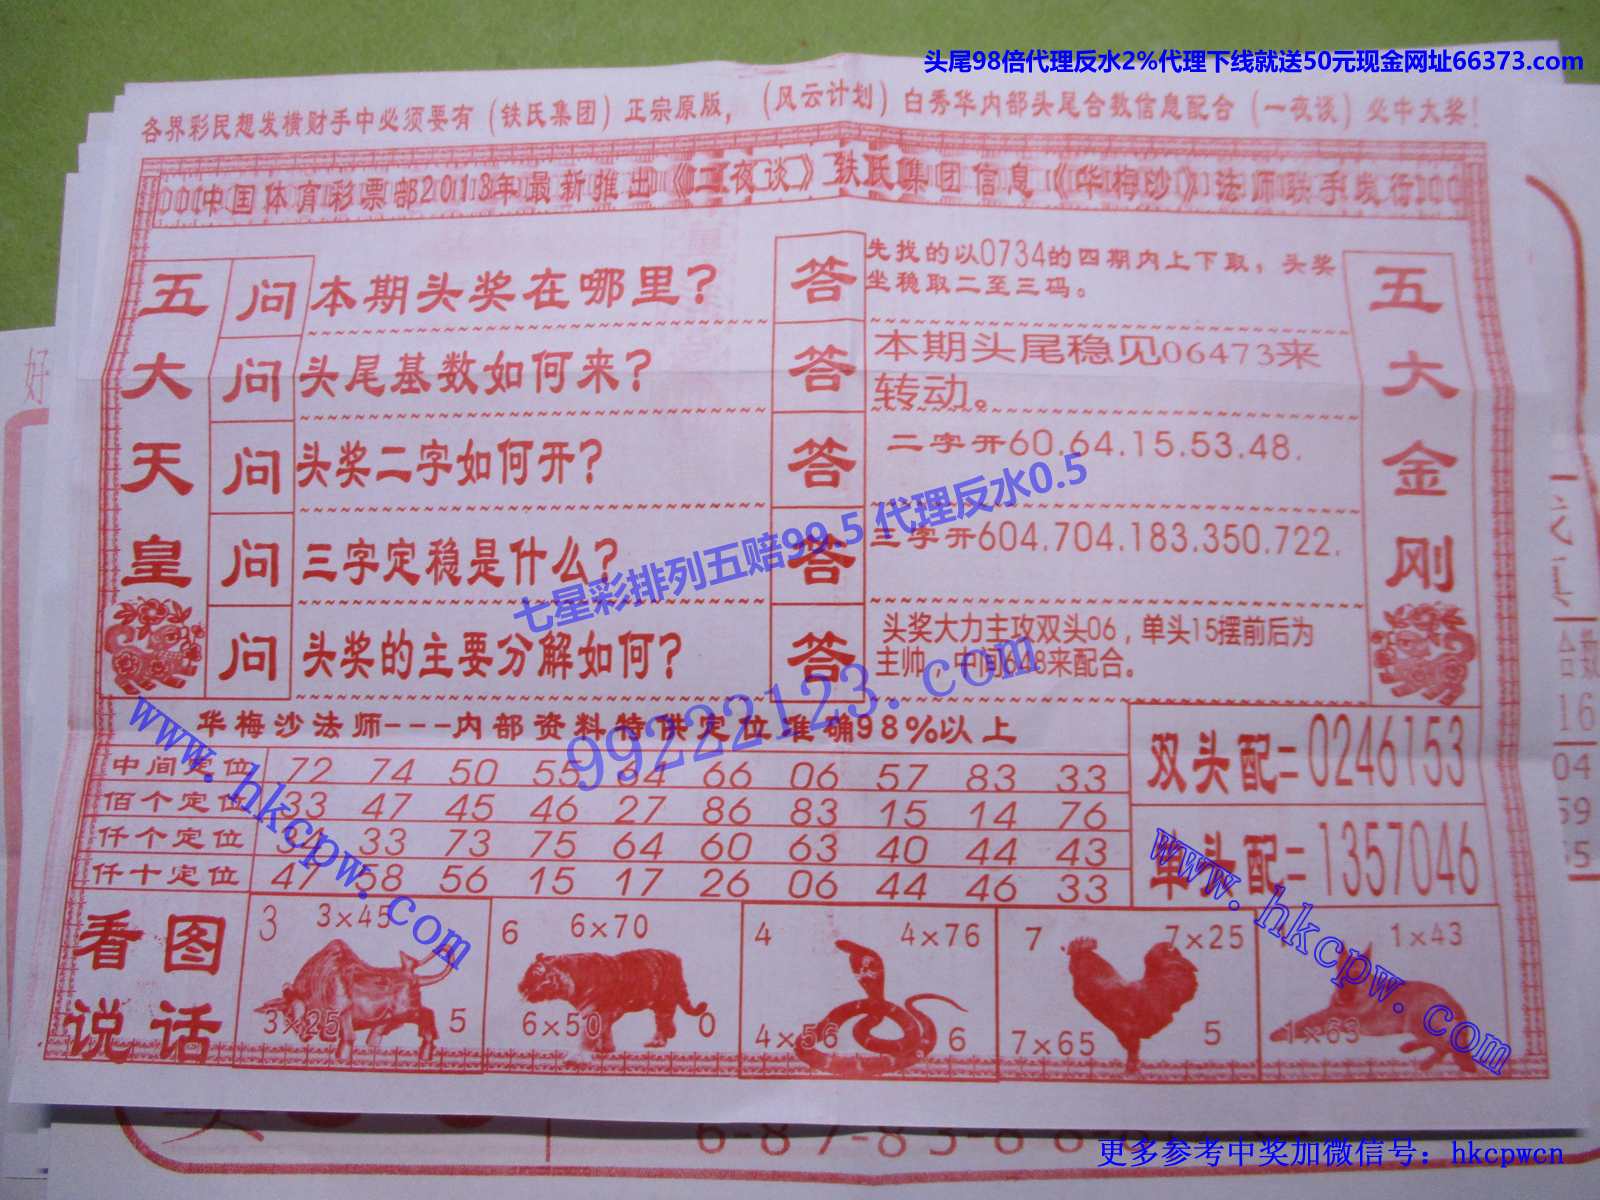 头尾98倍代理反水2%代理下线就送50元现金网址66373.com
各界彩民想发横财手中必须要有（铁氏集团）正宗原版，（风云计划）白秀华内部头尾合数信息配合（一夜谈）必中大奖！
中国体育彩票部2013年最新推出《一夜谈》铁氏集团信息《华梅沙》法师联手发行
五大天皇
问 本期头奖在哪里？
答 先找的以0734的四期内上下取，头奖
坐稳取二至三码。
问 头尾基数如何来？
答 本期头尾稳见06473来
转动。
问 头奖二字如何开？
答 二字开60.64.15.53.48.
问 三字定稳是什么？
答 三字开604.704.183.350.722.
问 头奖的主要分解如何？
答 头奖大力主攻双头06，单头15摆前后为
主帅，中间648来配合。
五大金刚
七星彩排列五赔99.5 代理反水0.5
99222123.com
华梅沙法师---内部资料特供定位准确98%以上
中间定位 72 74 50 55 64 66 06 57 83 33
佰个定位 33 47 45 46 27 86 83 15 14 76
仟个定位 33 73 75 64 60 63 40 44 43
仟十定位 47 58 56 15 17 26 06 44 46 33
双头配二 0246153
单头配二 1357046
www.hkcpw.com
www.hkcpw.com
看图
说话
3 3×45
3×25 5
6 6×70
6×50 0
4 4×76
4×56 6
7 7×25
7×65 5
1×43
1×63
好
合数
16
04
59
6-87-83-6
更多参考中奖加微信号：hkcpwcn